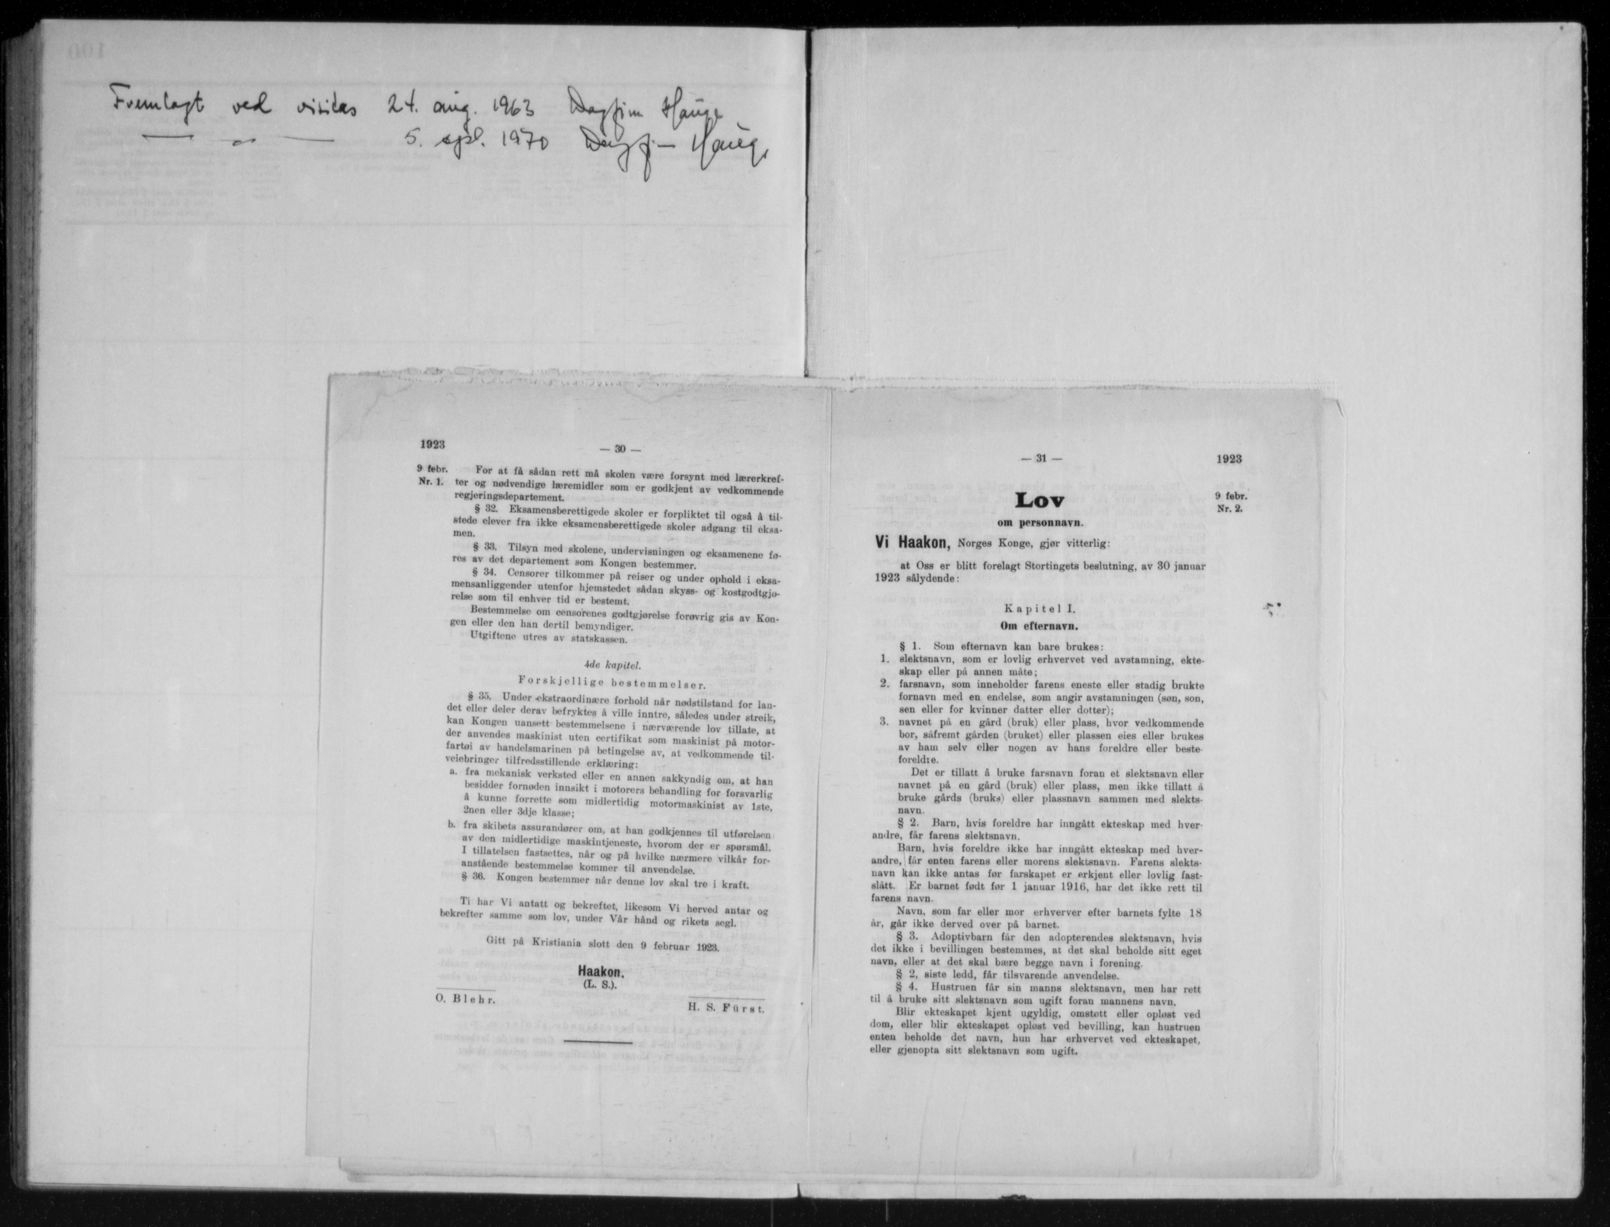 Fremlagt ved visitas 24. aug. 1963 Dagfinn Hauge
— „ — 5. spt. 1970 Dagfinn Hauge
1923
— 30 —
9 febr.
Nr. 1.
For at få sådan rett må skolen være forsynt med lærerkref-
ter og nødvendige læremidler som er godkjent av vedkommende
regjeringsdepartement.
§ 32. Eksamensberettigede skoler er forpliktet til også å til-
stede elever fra ikke eksamensberettigede skoler adgang til eksa-
men.
§ 33. Tilsyn med skolene, undervisningen og eksamenene fø-
res av det departement som Kongen bestemmer.
§ 34. Censorer tilkommer på reiser og under ophold i eksa-
mensanliggender utenfor hjemstedet sådan skyss- og kostgodtgjø-
relse som til enhver tid er bestemt.
Bestemmelse om censorenes godtgjørelse forøvrig gis av Kon-
gen eller den han dertil bemyndiger.
Utgiftene utres av statskassen.
4de kapitel.
Forskjellige bestemmelser.
§ 35. Under ekstraordinære forhold når nødstilstand for lan-
det eller deler derav befryktes å ville inntre, således under streik,
kan Kongen uansett bestemmelsene i nærværende lov tillate, at
der anvendes maskinist uten certifikat som maskinist på motor-
fartøi av handelsmarinen på betingelse av, at vedkommende til-
veiebringer tilfredsstillende erklæring:
a. fra mekanisk verksted eller en annen sakkyndig om, at han
besidder fornøden innsikt i motorers behandling for forsvarlig
å kunne forrette som midlertidig motormaskinist av 1ste,
2nen eller 3dje klasse;
b. fra skibets assurandører om, at han godkjennes til utførelsen
av den midlertidige maskintjeneste, hvorom der er spørsmål.
I tillatelsen fastsettes, når og på hvilke nærmere vilkår for-
anstående bestemmelse kommer til anvendelse.
§ 36. Kongen bestemmer når denne lov skal tre i kraft.
Ti har Vi antatt og bekreftet, likesom Vi herved antar og
bekrefter samme som lov, under Vår hånd og rikets segl.
Gitt på Kristiania slott den 9 februar 1923.
Haakon.
(L. S.).
O. Blehr.
H. S. Fürst.
— 31 —
1923
9 febr.
Nr. 2.
Lov
om personnavn.
Vi Haakon, Norges Konge, gjør vitterlig:
at Oss er blitt forelagt Stortingets beslutning, av 30 januar
1923 sålydende:
Kapitel I.
Om efternavn.
§ 1. Som efternavn kan bare brukes:
1. slektsnavn, som er lovlig erhvervet ved avstamning, ekte-
skap eller på annen måte;
2. farsnavn, som inneholder farens eneste eller stadig brukte
fornavn med en endelse, som angir avstamningen (søn, son,
sen eller for kvinner datter eller dotter);
3. navnet på en gård (bruk) eller plass, hvor vedkommende
bor, såfremt gården (bruket) eller plassen eies eller brukes
av ham selv eller nogen av hans foreldre eller beste-
foreldre.
Det er tillatt å bruke farsnavn foran et slektsnavn eller
navnet på en gård (bruk) eller plass, men ikke tillatt å
bruke gårds (bruks) eller plassnavn sammen med slekts-
navn.
§ 2. Barn, hvis foreldre har inngått ekteskap med hver-
andre, får farens slektsnavn.
Barn, hvis foreldre ikke har inngått ekteskap med hver-
andre, får enten farens eller morens slektsnavn. Farens slekts-
navn kan ikke antas før farskapet er erkjent eller lovlig fast-
slått. Er barnet født før 1 januar 1916, har det ikke rett til
farens navn.
Navn, som far eller mor erhverver efter barnets fylte 18
år, går ikke derved over på barnet.
§ 3. Adoptivbarn får den adopterendes slektsnavn, hvis
det ikke i bevillingen bestemmes, at det skal beholde sitt eget
navn, eller at det skal bære begge navn i forening.
§ 2, siste ledd, får tilsvarende anvendelse.
§ 4. Hustruen får sin manns slektsnavn, men har rett
til å bruke sitt slektsnavn som ugift foran mannens navn.
Blir ekteskapet kjent ugyldig, omstøtt eller opløst ved
dom, eller blir ekteskapet opløst ved bevilling, kan hustruen
enten beholde det navn, hun har erhvervet ved ekteskapet,
eller gjenopta sitt slektsnavn som ugift.